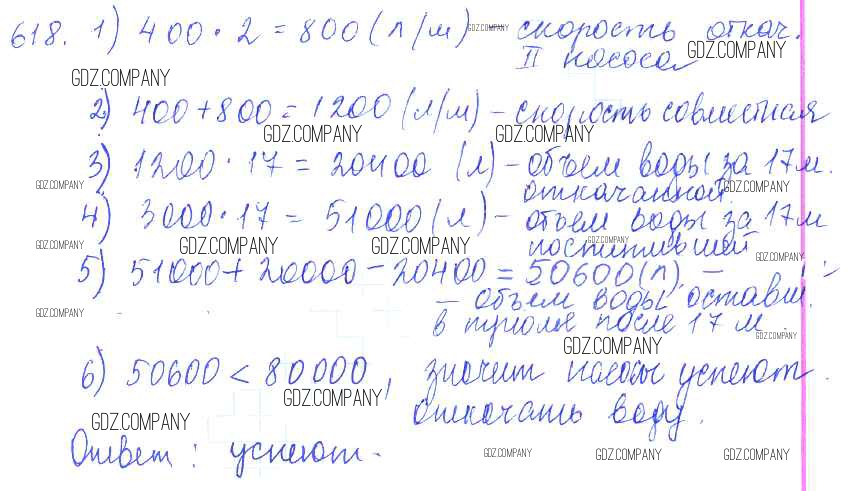 618. 1) 400 · 2 = 800 (л/м) - скорость откач.
GDZ.COMPANY
II насоса
GDZ.COMPANY
GDZ.COMPANY
2) 400 + 800 = 1200 (л/м) - скорость совместная
GDZ.COMPANY GDZ.COMPANY
3) 1200 · 17 = 20400 (л) - объем воды за 17 м.
GDZ.COMPANY откачанной. GDZ.COMPANY
4) 3000 · 17 = 51000 (л) - объем воды за 17 м
GDZ.COMPANY GDZ.COMPANY GDZ.COMPANY GDZ.COMPANY
поступившей GDZ.COMPANY
5) 51000 + 20000 - 20400 = 50600 (л), -
- объем воды, оставш.
GDZ.COMPANY
в трюме после 17 м
GDZ.COMPANY
GDZ.COMPANY
6) 50600 < 80000, значит насосы успеют
GDZ.COMPANY
откачать воду.
GDZ.COMPANY
Ответ: успеют.
GDZ.COMPANY GDZ.COMPANY GDZ.COMPANY